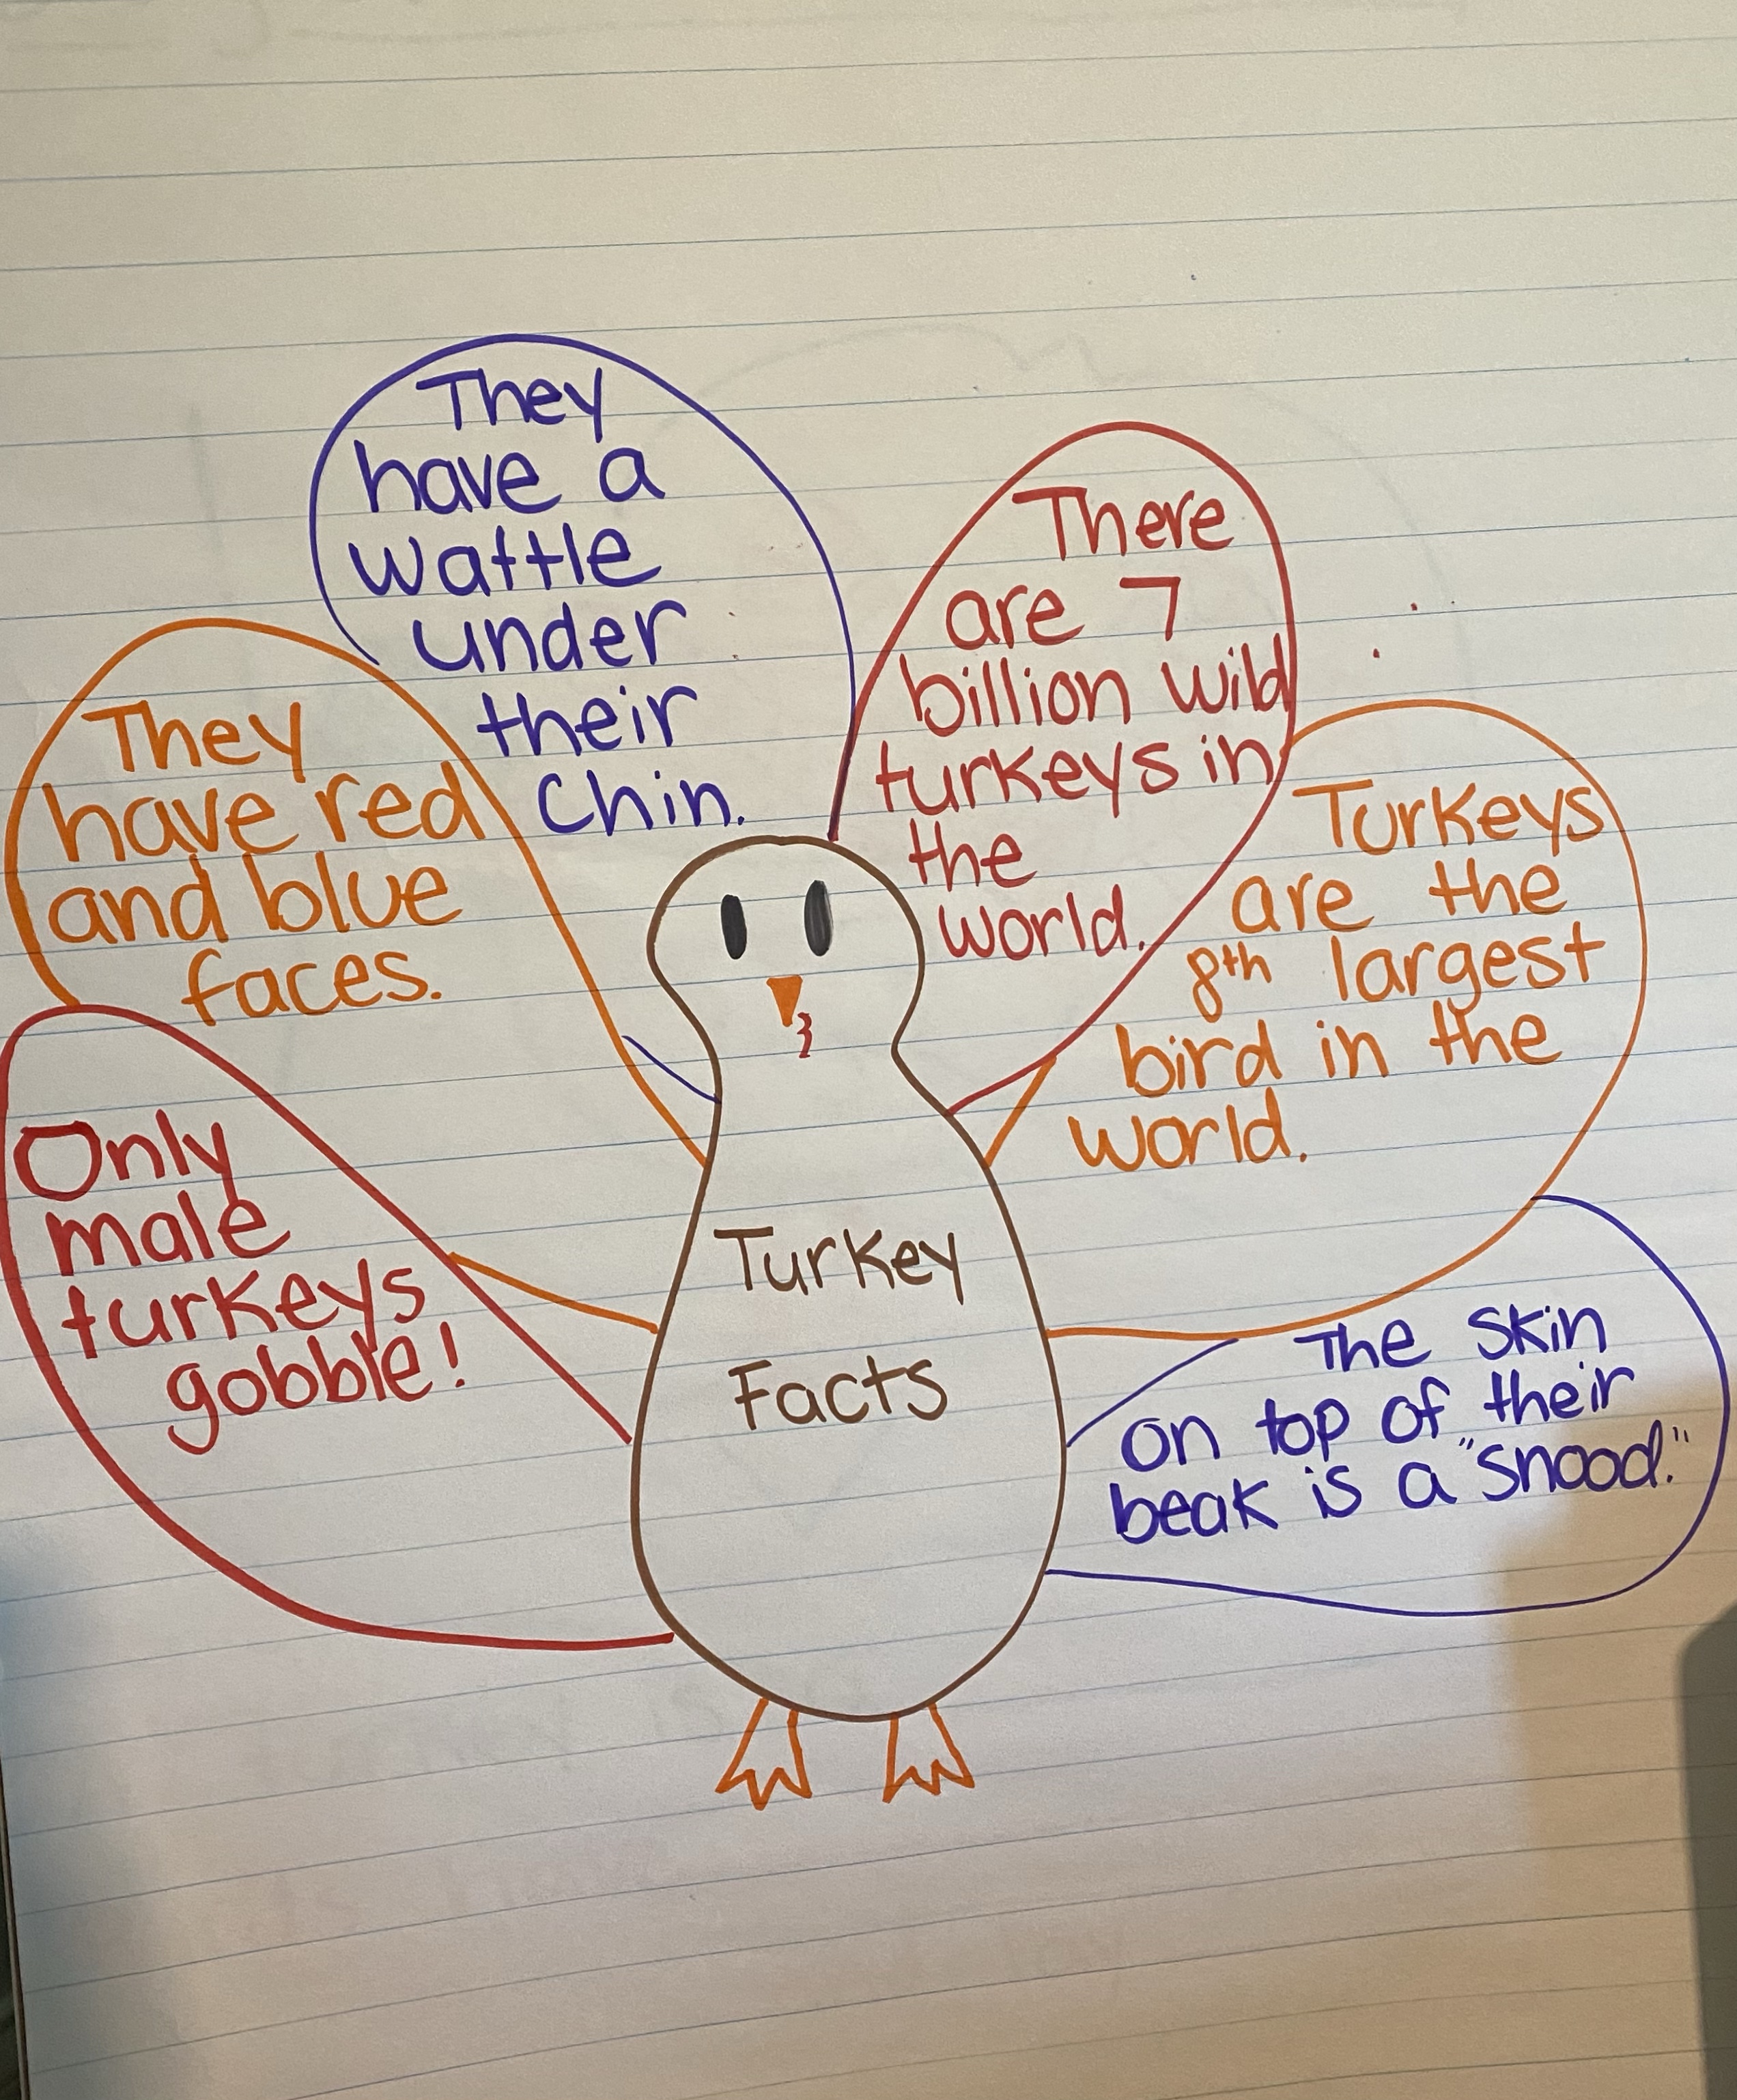 They
have a
wattle
under
their
Chin.
There
are 7
billion wild
turkeys in
the
world.
They
have red
and blue
faces.
Turkeys
are the
8th largest
bird in the
world.
Only
male
turkeys
gobble!
Turkey
Facts
The skin
on top of their
beak is a "snood."